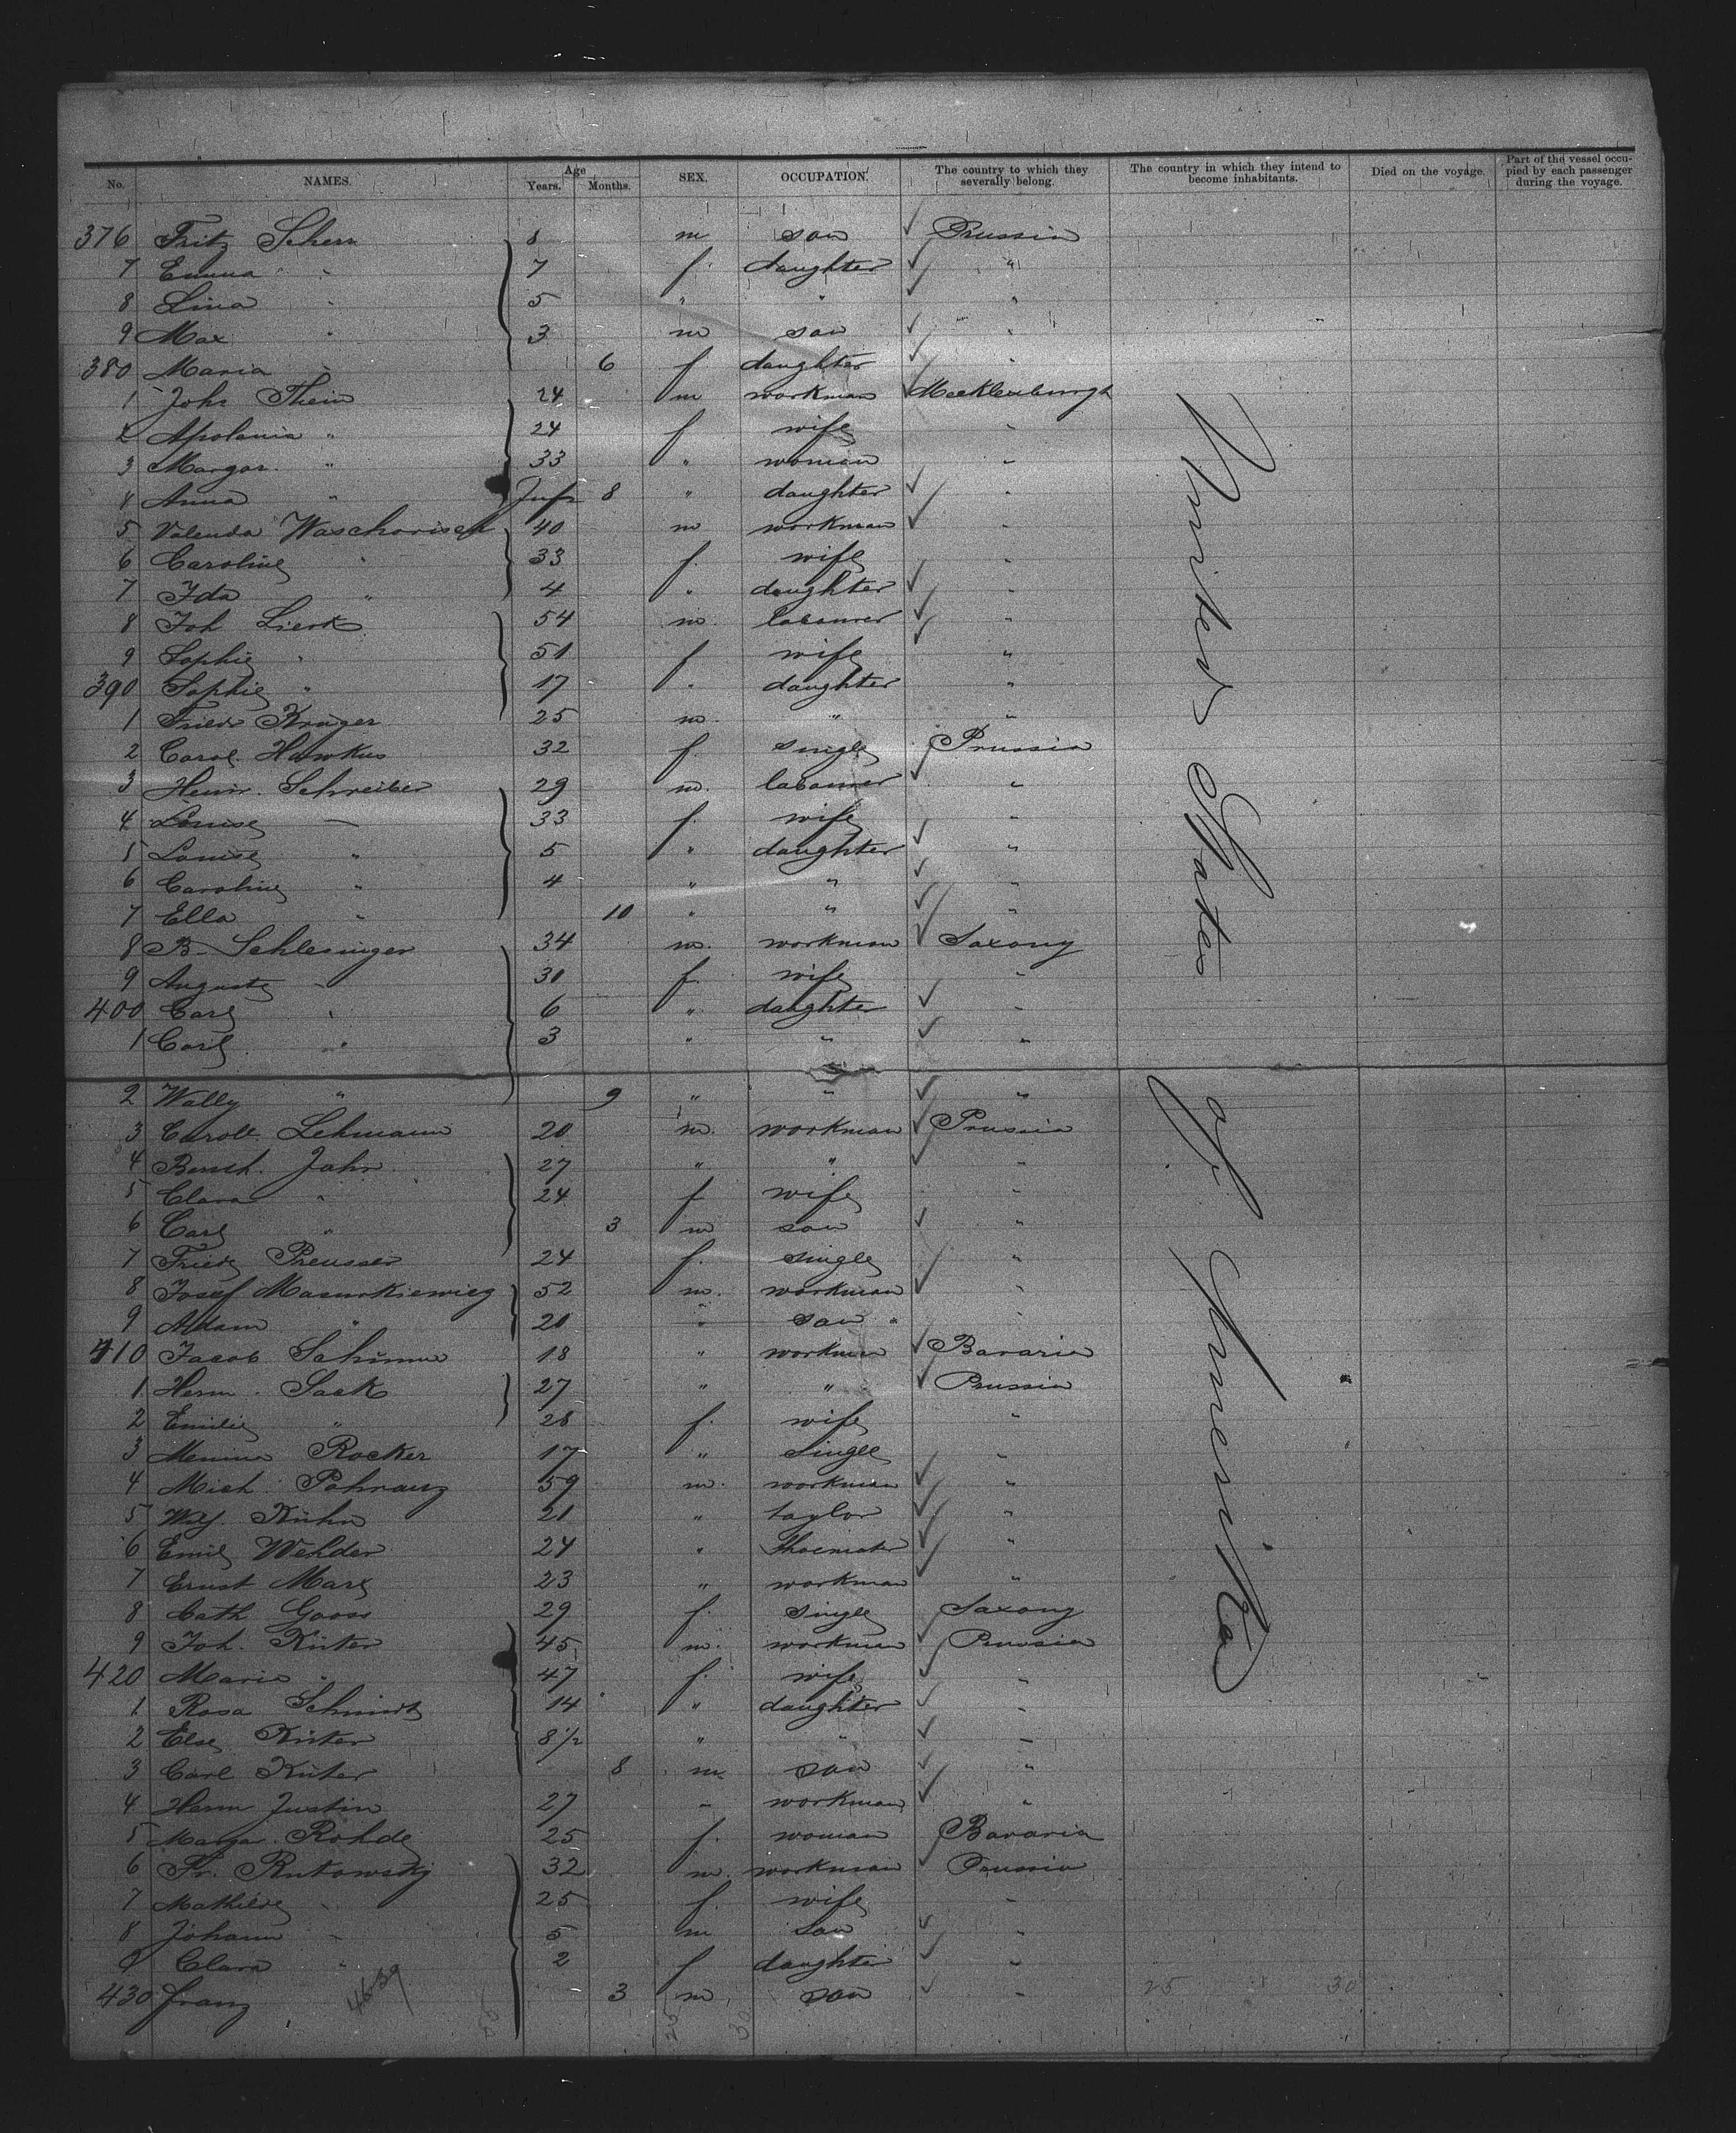 No. NAMES. Age Years. Months. SEX. OCCUPATION. The country to which they severally belong. The country in which they intend to become inhabitants. Died on the voyage. Part of the vessel occupied by each passenger during the voyage.
376 Fritz Scherr 8 m son ✓ Prussia
7 Emma " 7 f. daughter ✓ "
8 Lina " 5 " " ✓ "
9 Max " 3 m son ✓ "
380 Maria " 6 f daughter ✓ "
1 Joh. Thein 24 m workman ✓ Mecklenburgh
2 Apolonia " 24 f wife "
3 Margar. " 33 " woman "
4 Anna " Infr 8 " daughter ✓ "
5 40 m workman ✓ "
6 Caroline " 33 f. wife "
7 Ida " 4 " daughter ✓ "
8 Joh 54 m. labourer ✓ "
9 Sophie " 51 f wife "
390 Sophie " 17 " daughter "
1 Friedr Kruger 25 m. " "
2 Carol. Hawkus 32 f. single Prussia
3 Heinr. Schreiber 29 m. labourer ✓ "
4 Louise — 33 f. wife "
5 Louise " 5 " daughter ✓ "
6 Caroline " 4 " " ✓ "
7 Ella " 10 " " ✓ "
8 B. Schlesinger 34 m. workman ✓ Saxony
9 Auguste " 30 f. wife "
400 Carl " 6 " daughter ✓ "
1 Carl " 3 " " ✓ "
2 Wally " 9 " " ✓ "
3 Lehmann 20 m. workman ✓ Prussia
4 Jahn 27 " " ✓ "
5 Clara " 24 f wife "
6 Carl " 3 m son ✓ "
7 Friedr Preusser 24 f. single "
8 Josef Masurkiewicz 52 m. workman ✓ "
9 Adam " 20 " son " "
410 Jacob 18 " workman ✓ Bavaria
1 Herm. Sack 27 " " ✓ Prussia
2 Emilie " 28 f. wife "
3 Rocker 17 " single "
4 Mich. 59 m. workman ✓ "
5 Kuhn 21 " taylor ✓ "
6 Emil Wehder 24 " Shoemakr ✓ "
7 Ernst Marx 23 " workman ✓ "
8 Cath Gooss 29 f. single Saxony
9 Joh. Küter 45 m. workman ✓ Prussia
420 Maria " 47 f. wife ✓ "
1 Rosa Schmidt 14 " daughter ✓ "
2 Else Küter 8½ " " ✓ "
3 Carl Küter 8 m. son ✓ "
4 Herm Justin 27 " workman ✓ "
5 Margar. Rohde 25 f. woman Bavaria
6 Fr. Rutowsky 32 m. workman ✓ Prussia
7 Mathilde " 25 f. wife "
8 Johann " 5 m son ✓ "
9 Clara " 2 f daughter ✓ "
430 Franz 3 m son ✓ "
United States of America
25 30
25 30